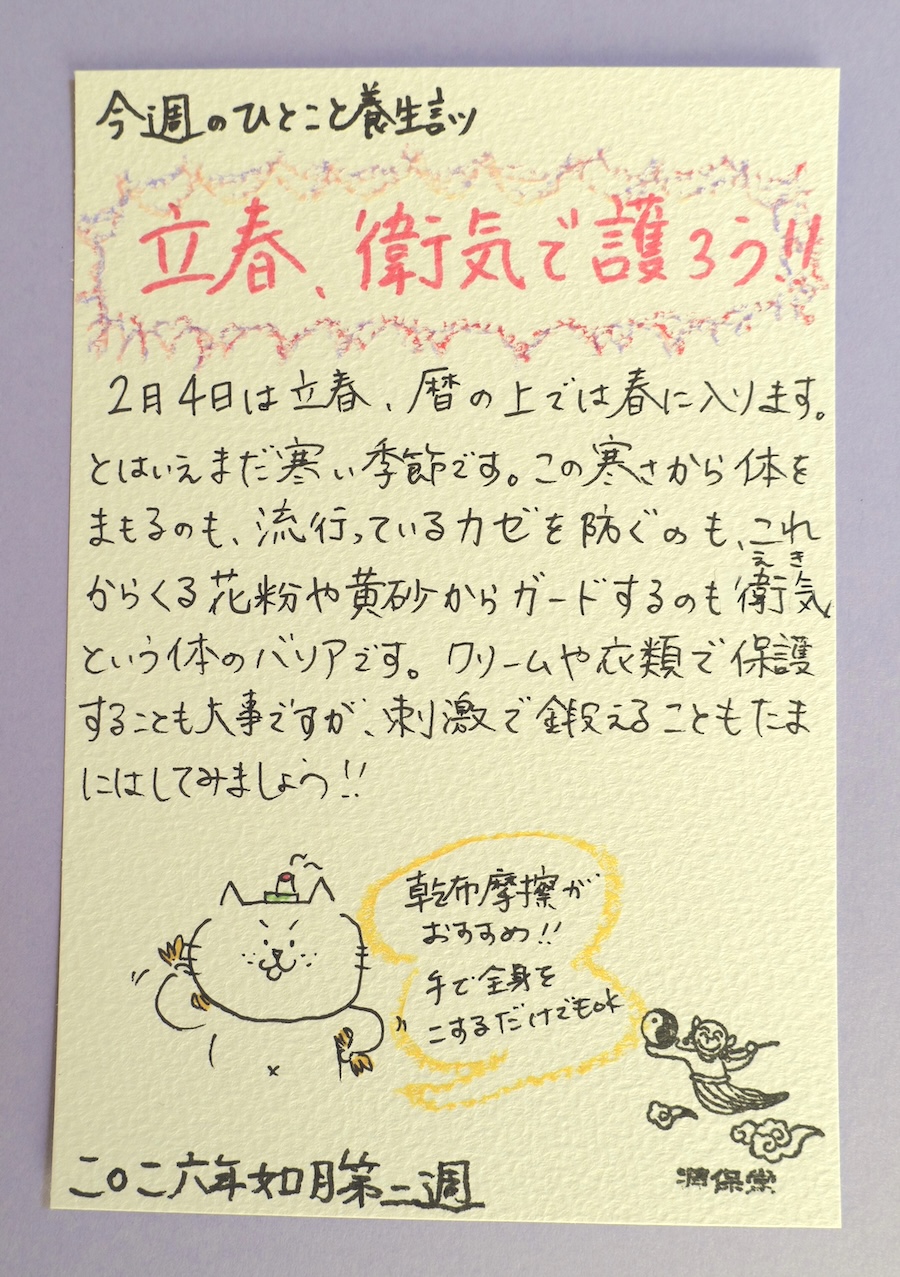 今週のひとこと養生訓
立春、衛気で護ろう!!
2月4日は立春、暦の上では春に入ります。
とはいえまだ寒い季節です。この寒さから体を
まもるのも、流行っているカゼを防ぐのも、これ
からくる花粉や黄砂からガードするのも衛気
えき
という体のバリアです。クリームや衣類で保護
することも大事ですが、刺激で鍛えることもたま
にはしてみましょう!!
乾布摩擦が
おすすめ!!
手で全身を
こするだけでもok
二〇二六年如月第二週
潤保堂